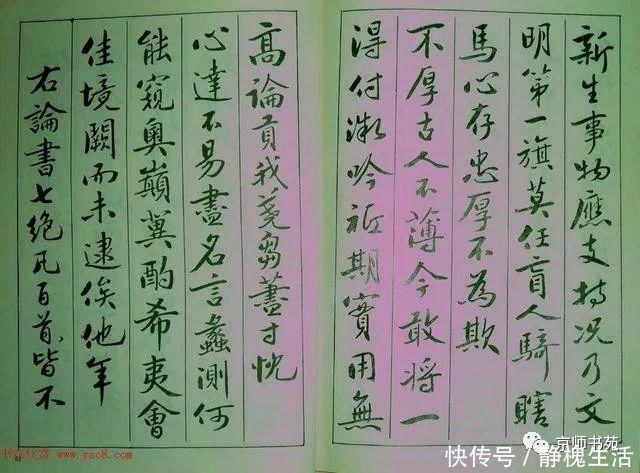 新生事物應支持况乃文
明第一旗莫任盲人騎瞎
馬心存忠厚不為欺
不厚古人不薄今敢將一
得付微吟祗期實用無
高論貢我蕘芻藎寸忱
心達不易盡名言蠡測何
能窺奥巔冀酌希夷會
佳境闕而未逮俟他年
右論書七絶凡百首皆不
书法欣赏 www.yac8.com
京师书苑
快传号/静槐生活